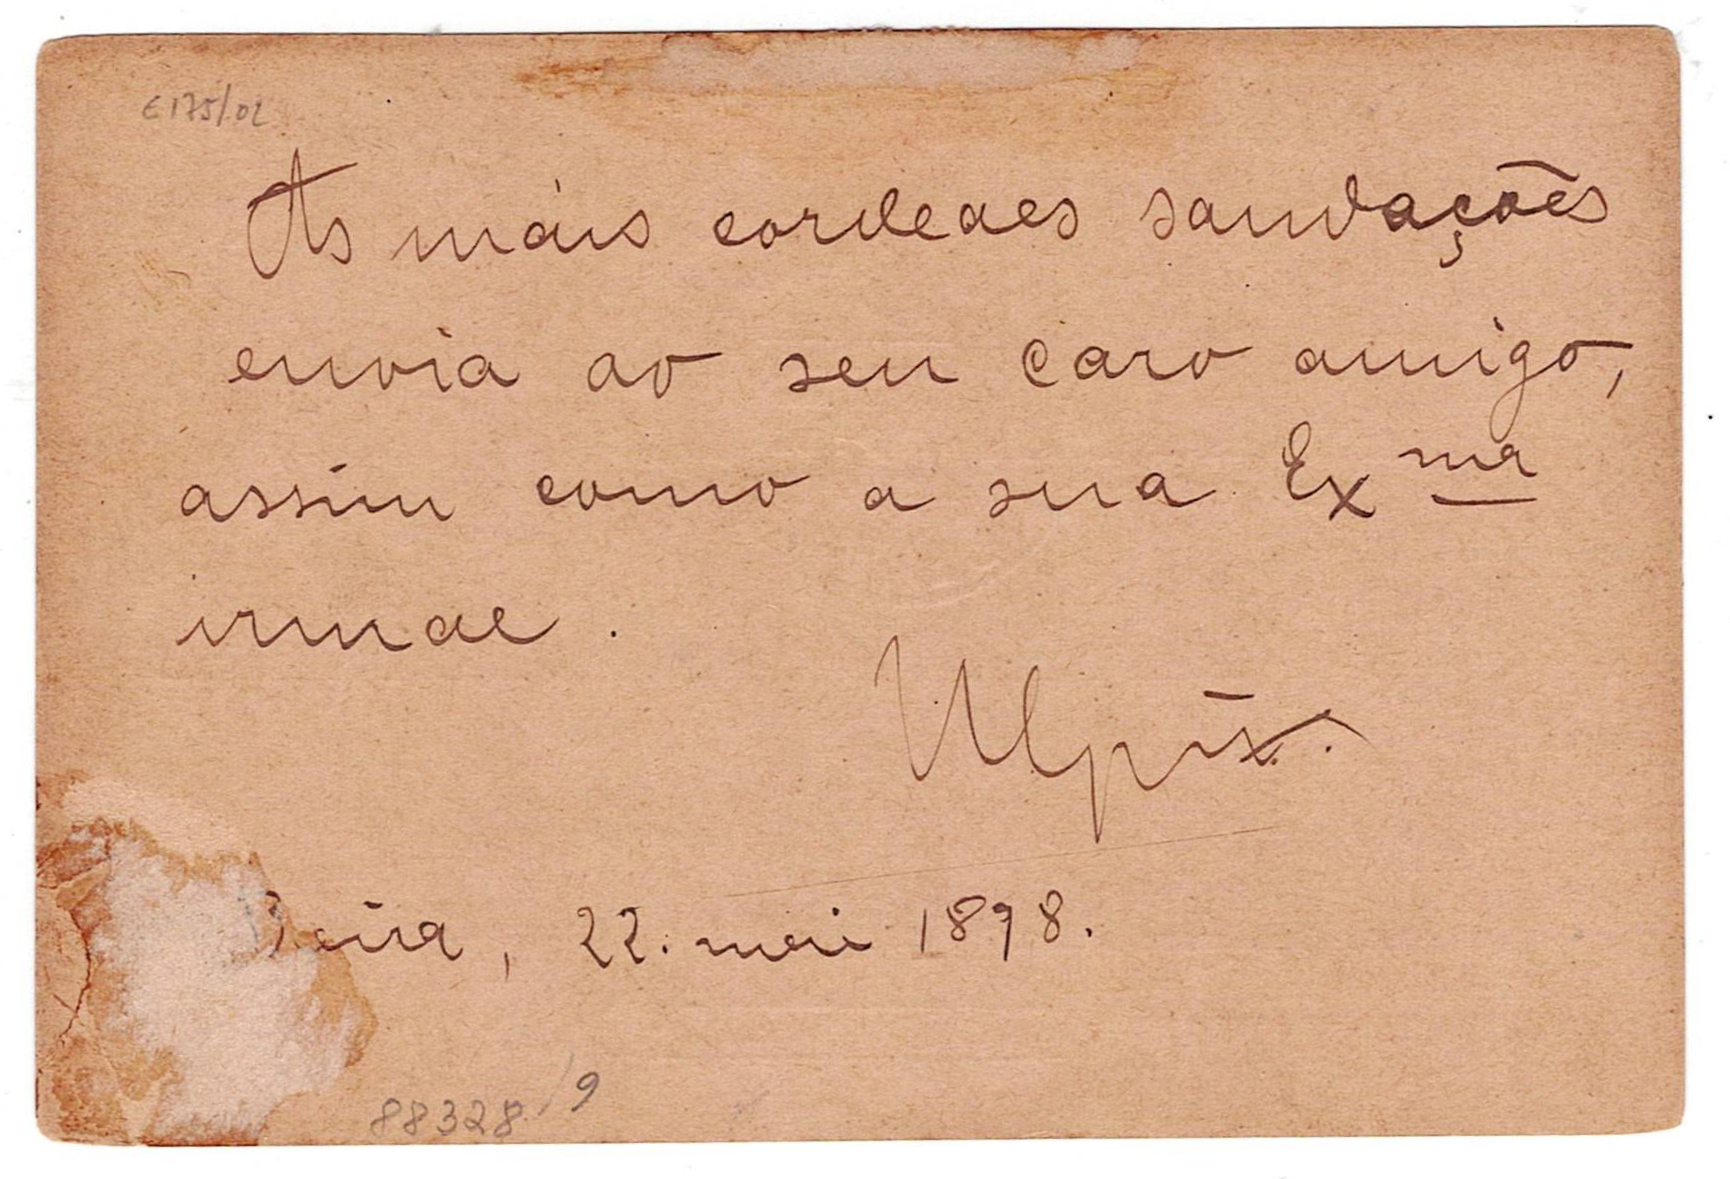 €175/02
As mais cordeaes saudações
envia ao seu caro amigo,
assim como a sua Ex ma
irmae.
Beira, 22. mai 1898.
88328/9